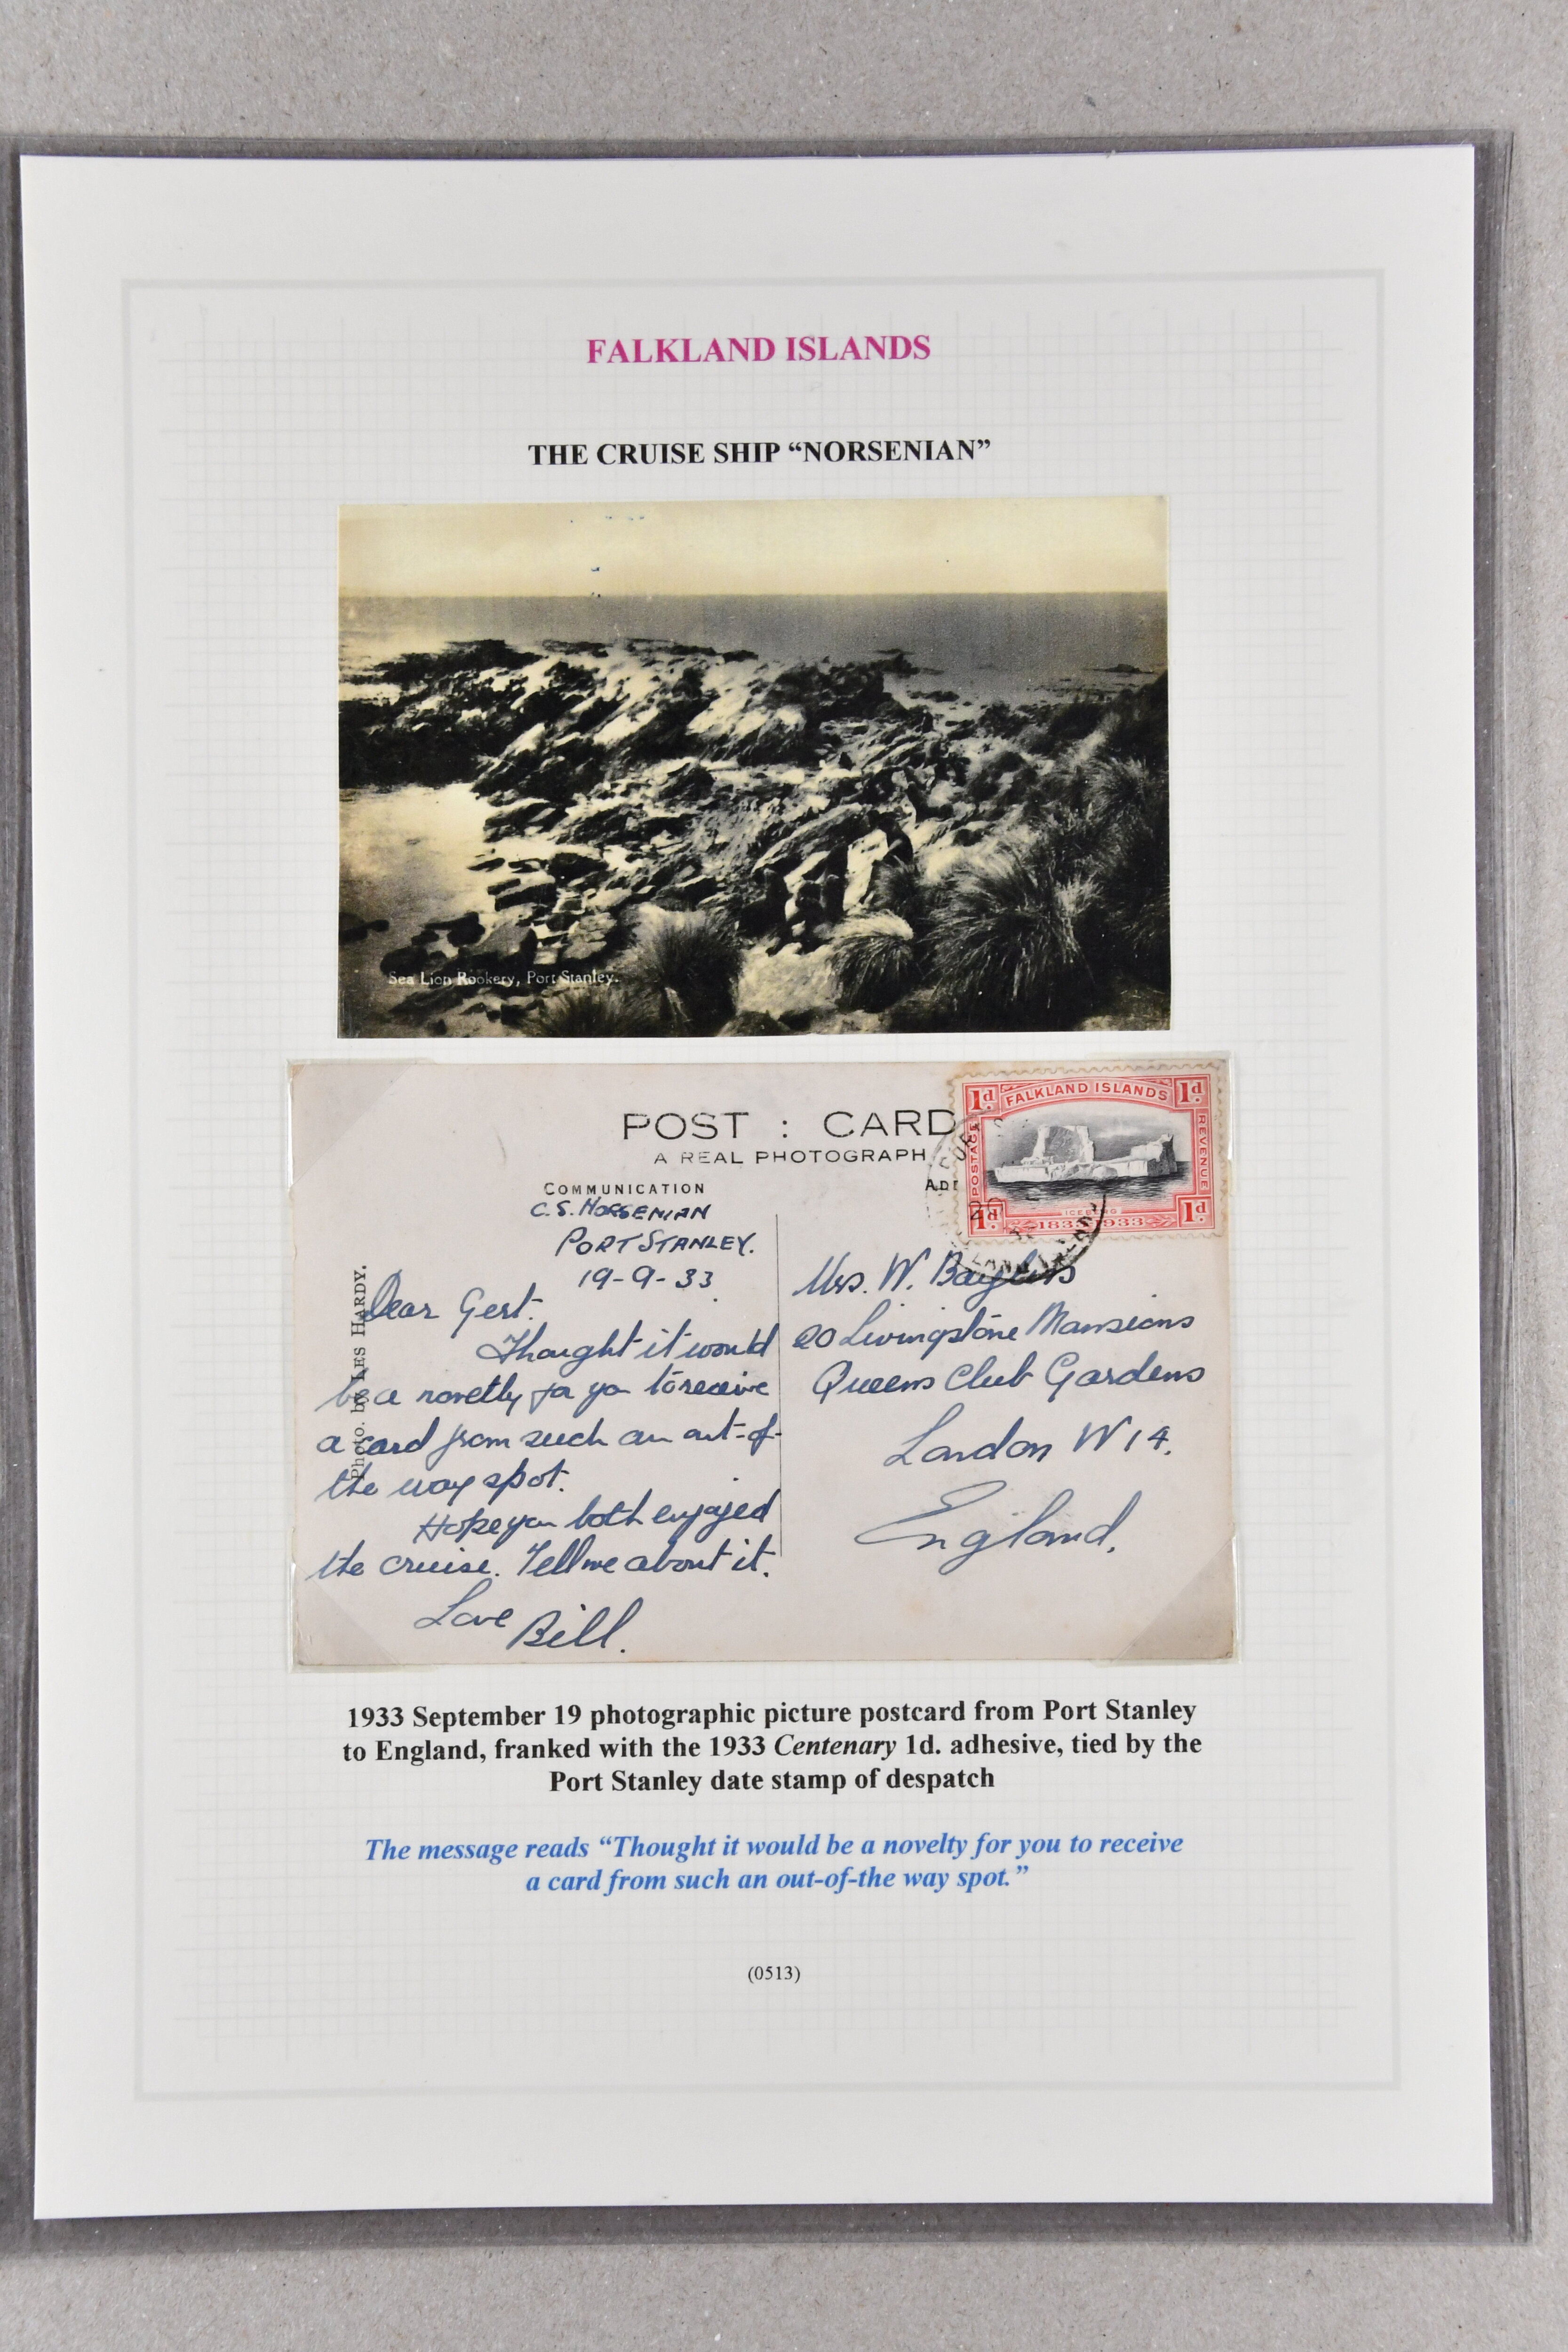 FALKLAND ISLANDS
THE CRUISE SHIP “NORSENIAN”
Sea Lion Rookery, Port Stanley.
POST : CARD
A REAL PHOTOGRAPH
COMMUNICATION
C.S. NORSENIAN
PORT STANLEY.
19-9-33
Photo. by LES HARDY.
Dear Gert.
Thought it would
be a novelty for you to receive
a card from such an out-of-
the way spot.
Hope you both enjoyed
the cruise. Tell me about it.
Love Bill.
1d FALKLAND ISLANDS 1d
POSTAGE
REVENUE
ICEBERG
1d 1833 1933 1d
Mrs. W. Bayliss
20 Livingstone Mansions
Queens Club Gardens
London W14.
England.
1933 September 19 photographic picture postcard from Port Stanley
to England, franked with the 1933 Centenary 1d. adhesive, tied by the
Port Stanley date stamp of despatch
The message reads “Thought it would be a novelty for you to receive
a card from such an out-of-the way spot.”
(0513)